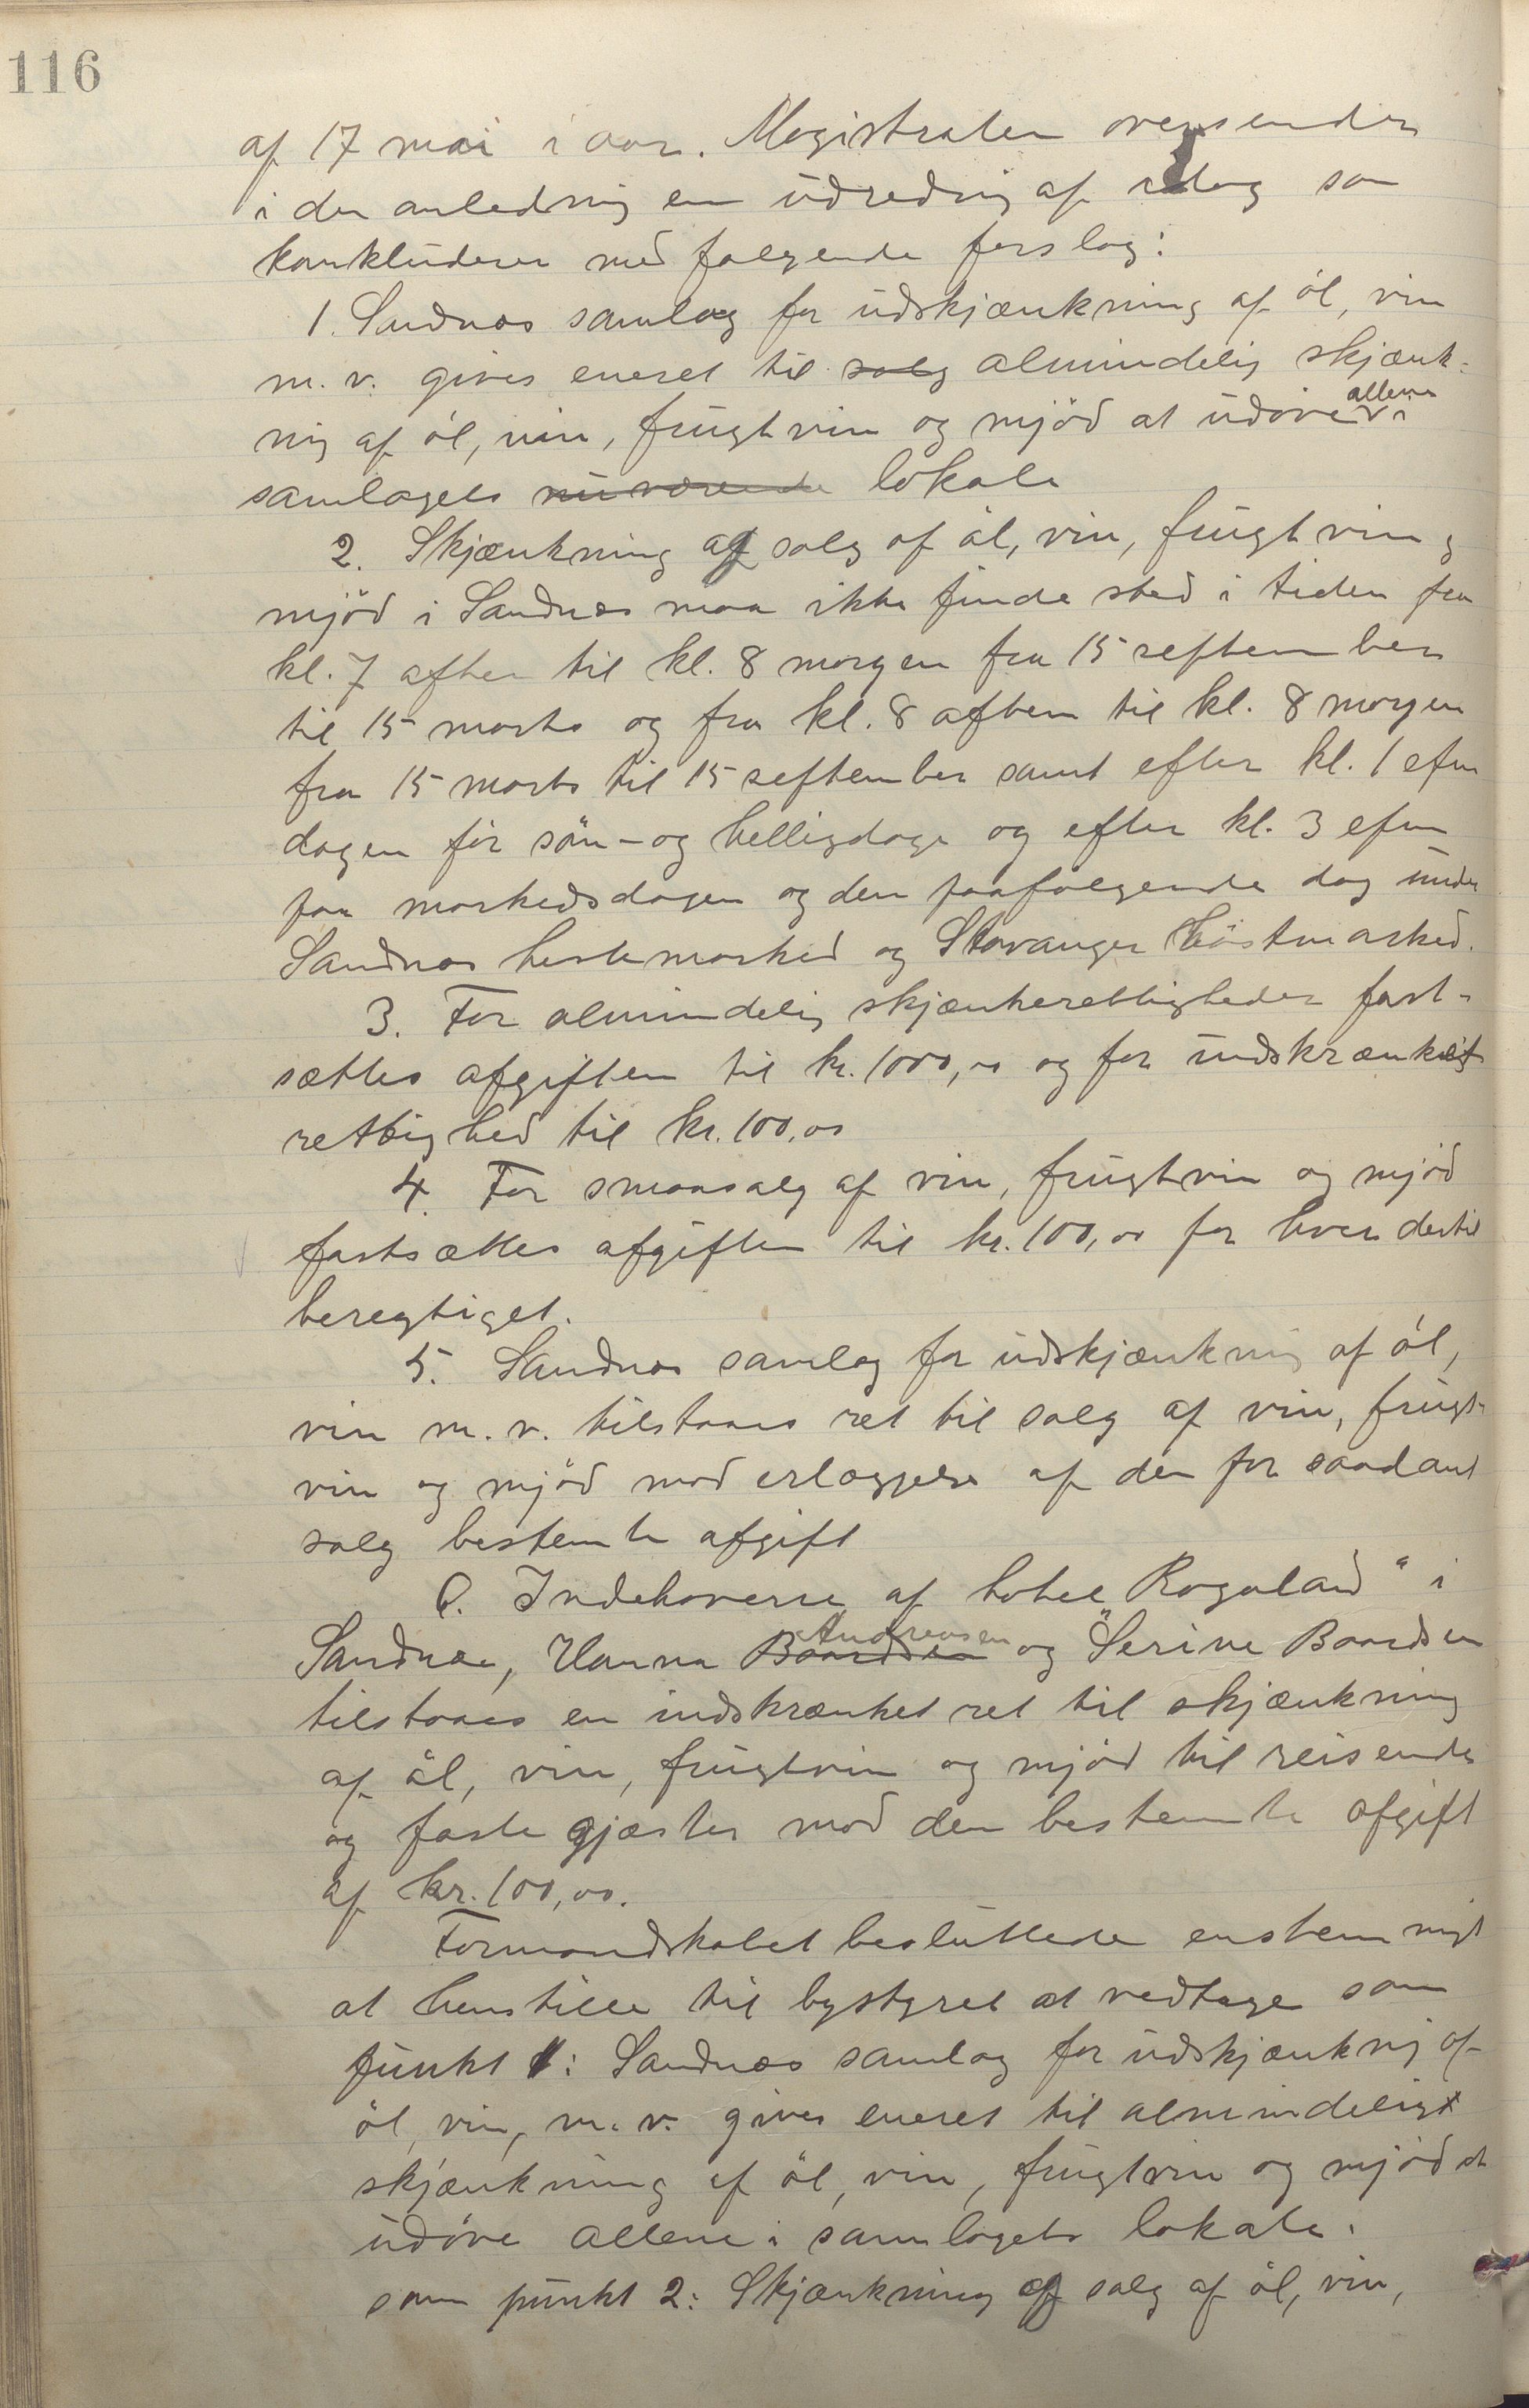 116
af 17 mai i aar. Magistraten oversender
i den anledning en udredning af idag som
konkluderer med følgende forslag:
1. Sandnæs samlag for udskjænkning af öl, vin
m. v. gives eneret til salg almindelig skjænk-
ning af öl, vin, frugtvin og mjöd at udöve allene i
samlagets nuværende lokale
2. Skjænkning og salg af öl, vin, frugtvin og
mjöd i Sandnæs maa ikke finde sted i tiden fra
kl. 7 aften til kl. 8 morgen fra 15 september
til 15 marts og fra kl. 8 aften til kl. 8 morgen
fra 15 marts til 15 september samt efter kl. 1 efm
dagen för sön- og helligdage og efter kl. 3 efm
paa markedsdagen og den paafølgende dag under
Sandnæs hestemarked og Stavanger höstmarked.
3. For almindelig skjænkerettigheder fast-
sættes afgiften til kr. 1000,00 og for indskrænket
rettighed til kr. 100,00
4. For smaasalg af vin, frugtvin og mjöd
fastsættes afgiften til kr. 100,00 for hver dertil
beregtiget.
5. Sandnæs samlag for udskjænkning af öl,
vin m. v. tilstaaes ret til salg af vin, frugt-
vin og mjöd mod erlæggelse af den for saadant
salg bestemte afgift
6. Indehaverne af hotel "Rogaland" i
Sandnæs, Hanna Baardsen Andreasen og Serine Baardsen
tilstaaes en indskrænket ret til skjænkning
af öl, vin, frugtvin og mjöd til reisende
og faste gjæster mod den bestemte afgift
af kr. 100,00.
Formandskabet besluttede enstemmigt
at henstille til bystyret at vedtage som
punkt 1: Sandnæs samlag for udskjænkning af
öl, vin, m. v. gives eneret til almindelig
skjænkning af öl, vin, frugtvin og mjöd at
udöve allene i samlagets lokale.
som punkt 2: Skjænkning og salg af öl, vin,